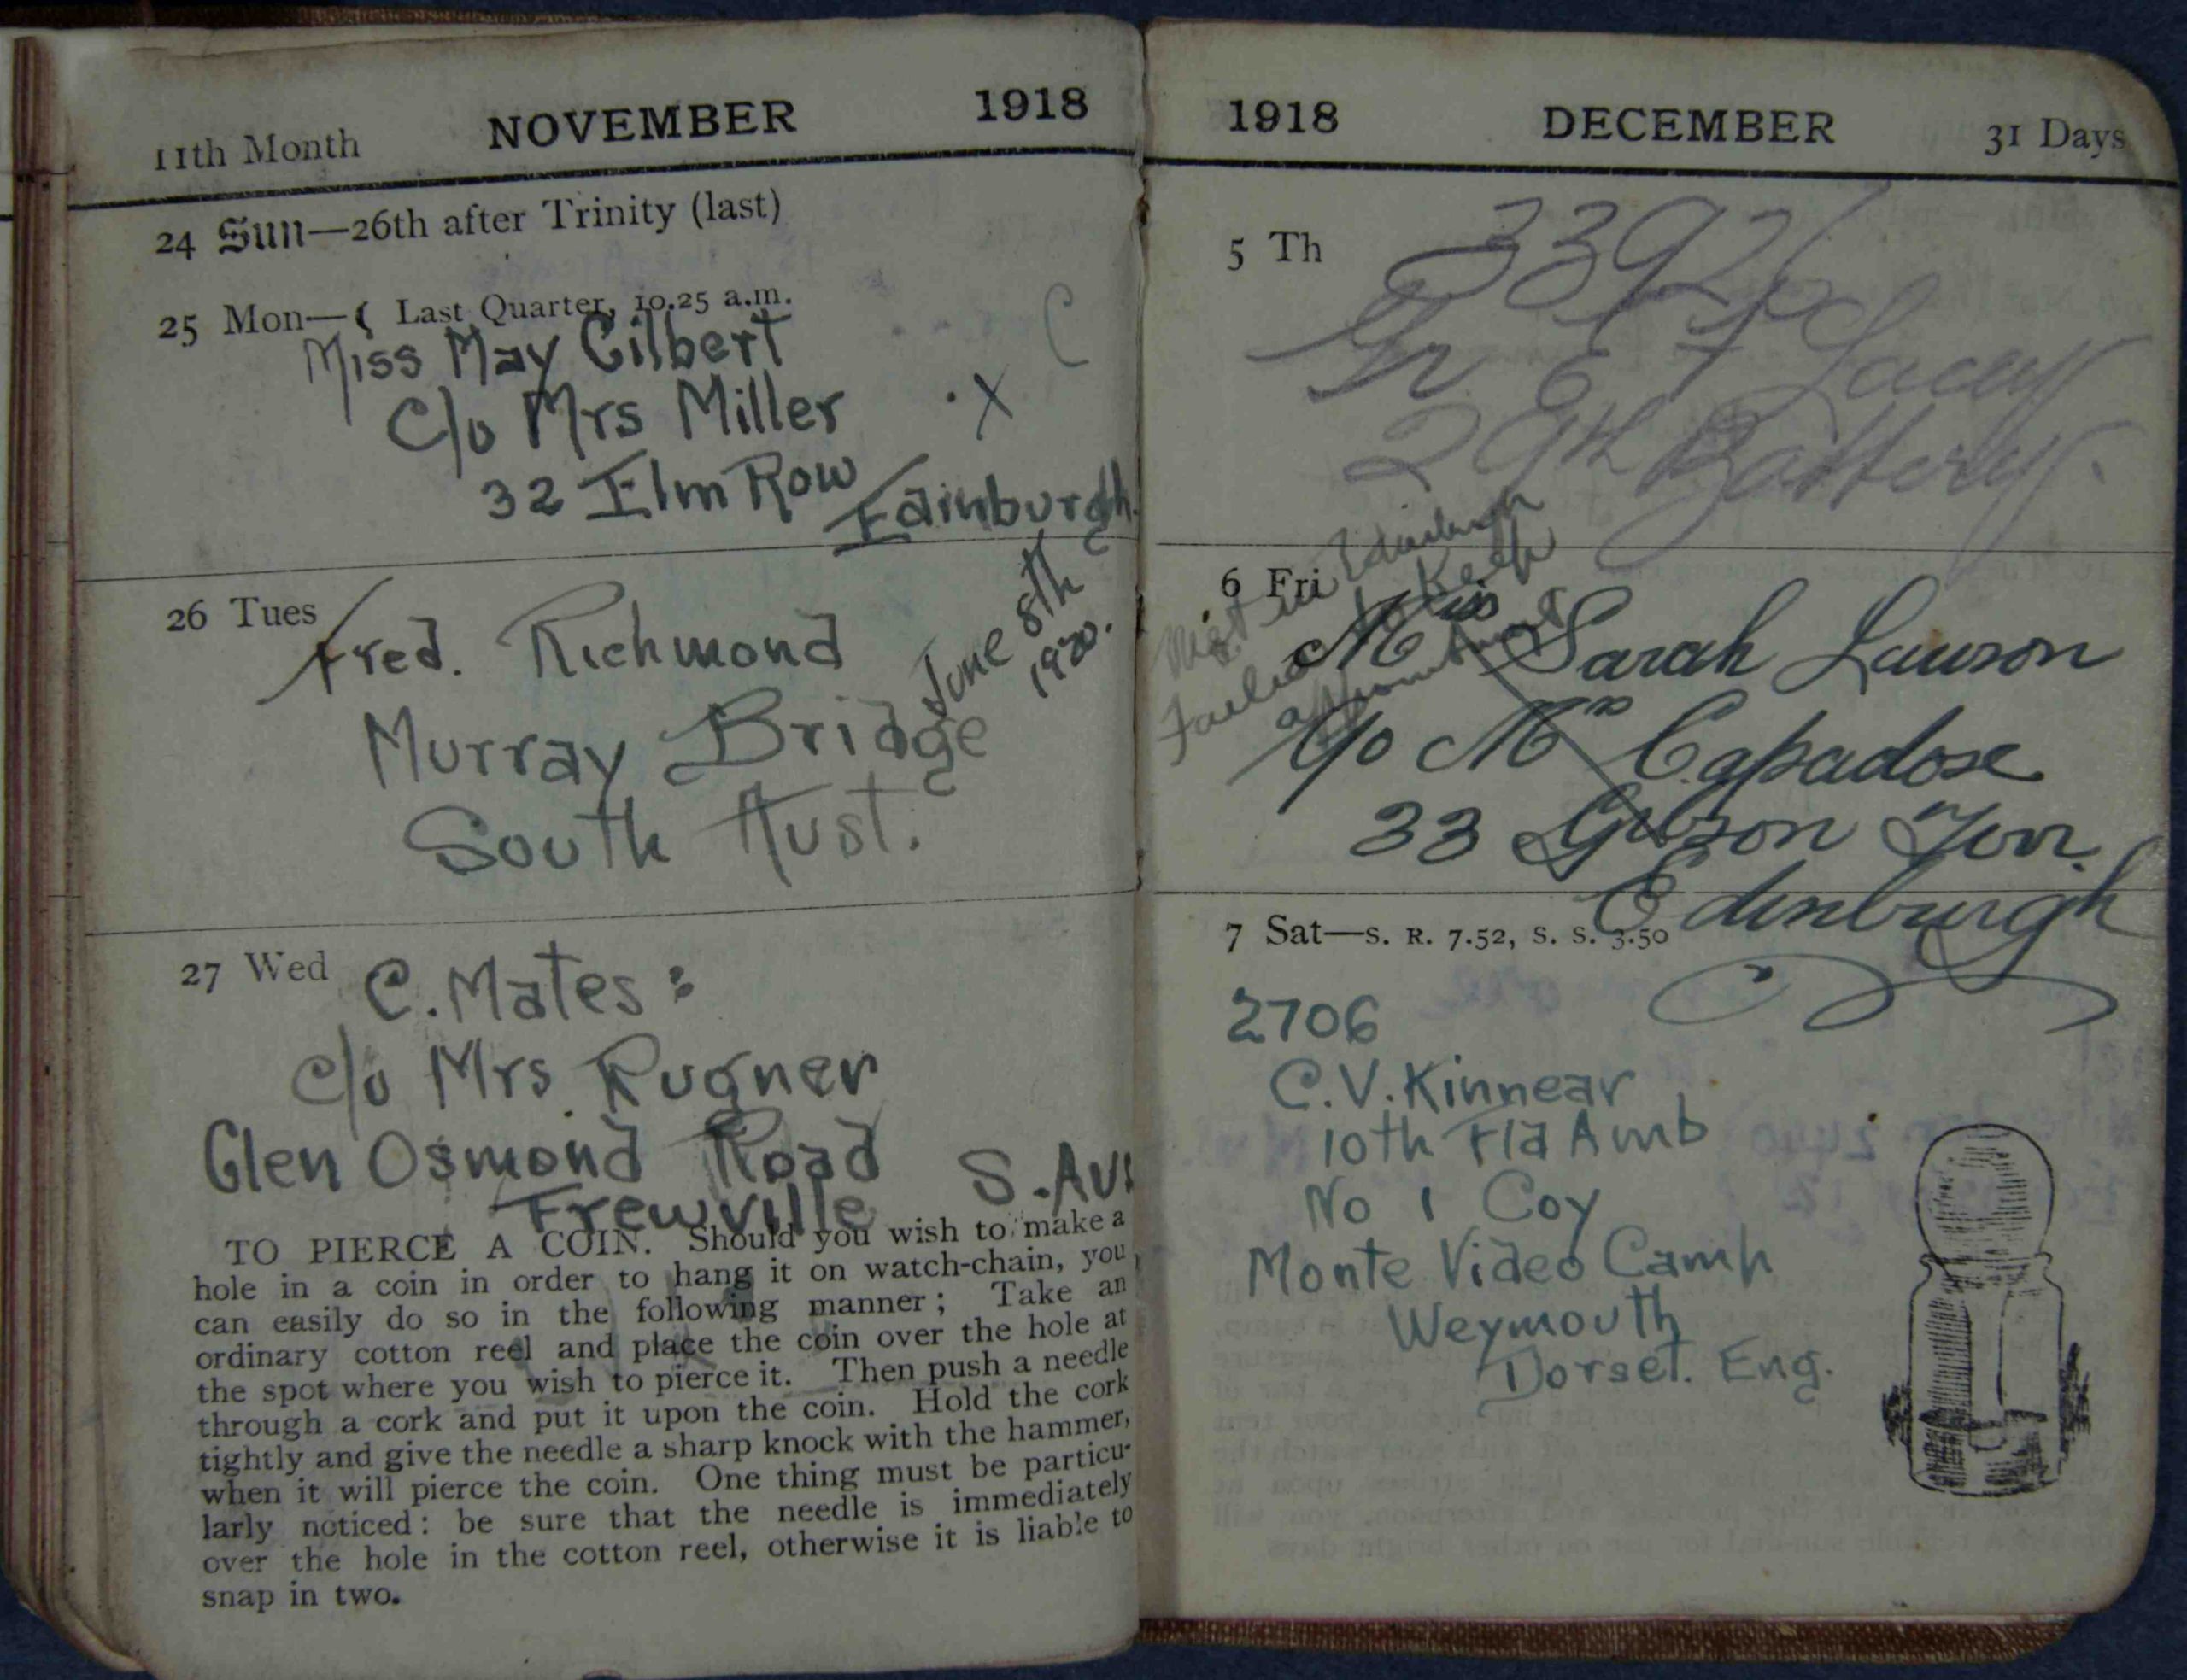 11th Month NOVEMBER 1918
24 Sun—26th after Trinity (last)
25 Mon—☾ Last Quarter, 10.25 a.m.
C
Miss May Gilbert
C/o Mrs Miller . X
32 Elm Row
Edinburgh.
26 Tues
Fred. Richmond
June 8th
1920.
Murray Bridge
South Aust.
27 Wed
C. Mates:
C/o Mrs. Rugner
Glen Osmond Road
Frewville S. Aus
TO PIERCE A COIN. Should you wish to make a
hole in a coin in order to hang it on watch-chain, you
can easily do so in the following manner; Take an
ordinary cotton reel and place the coin over the hole at
the spot where you wish to pierce it. Then push a needle
through a cork and put it upon the coin. Hold the cork
tightly and give the needle a sharp knock with the hammer,
when it will pierce the coin. One thing must be particu-
larly noticed: be sure that the needle is immediately
over the hole in the cotton reel, otherwise it is liable to
snap in two.
1918 DECEMBER 31 Days
5 Th
33926
Gr E F Lacey
29th Battery.
6 Fri
Met in Edinburgh
Failed to Keep
appointment
Miss Sarah Lawson
C/o Mrs Capadose
33 Gibson Terr.
Edinburgh
7 Sat—S. R. 7.52, S. S. 3.50
2706
C.V. Kinnear
10th Fld Amb
No 1 Coy
Monte Video Camp
Weymouth
Dorset. Eng.